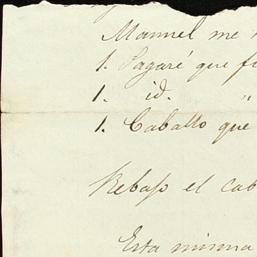 Manuel me
1. Pagaré que fi
1. id. "
1. Caballo que
Rebajo el cab
Esta misma